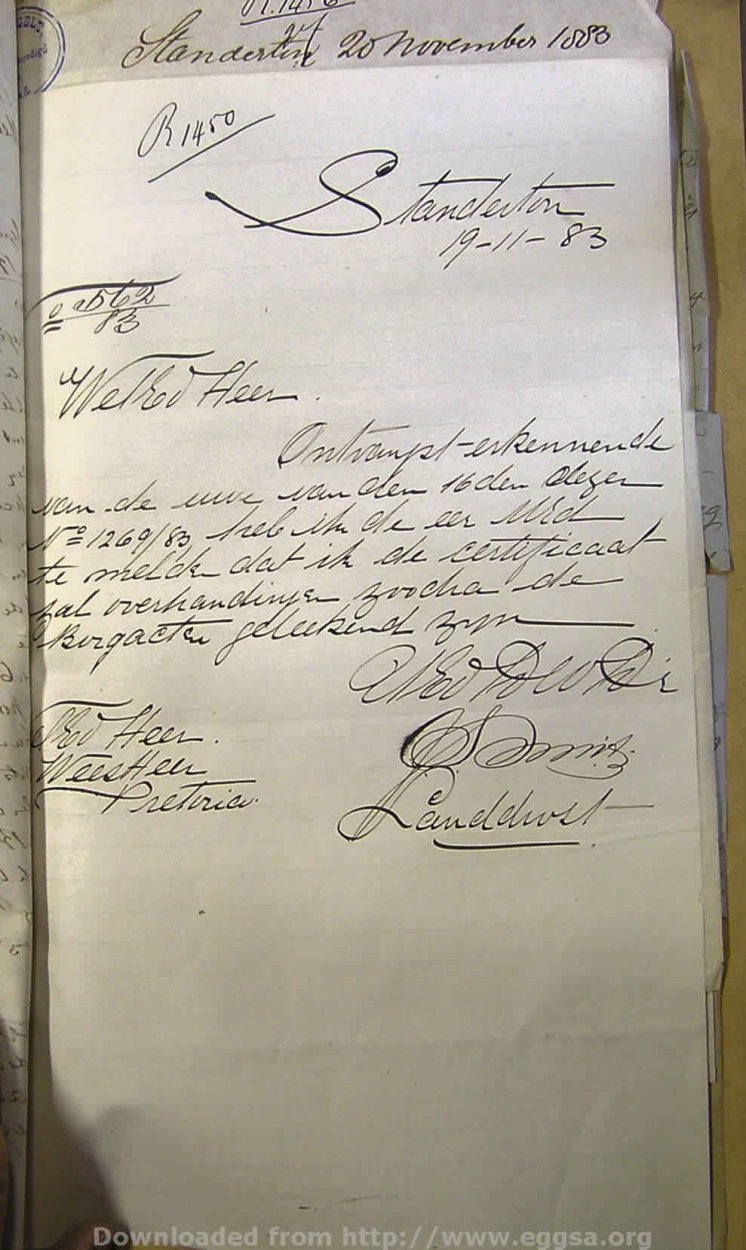 R. 1456
Standerton 20 November 1883
R 1450
Standerton
19-11-83
No 562
83
WelEd Heer.
Ontvangst-erkennende
van de uwe van den 16den dezer
No 1269/83 heb ik de eer UEd
te melden dat ik de certificaat
zal overhandigen zoodra de
Borgacten geteekend zyn
UEd DW Dr
Smit
Landdrost
Ed Heer.
WeesHeer
Pretoria.
Downloaded from http://www.eggsa.org